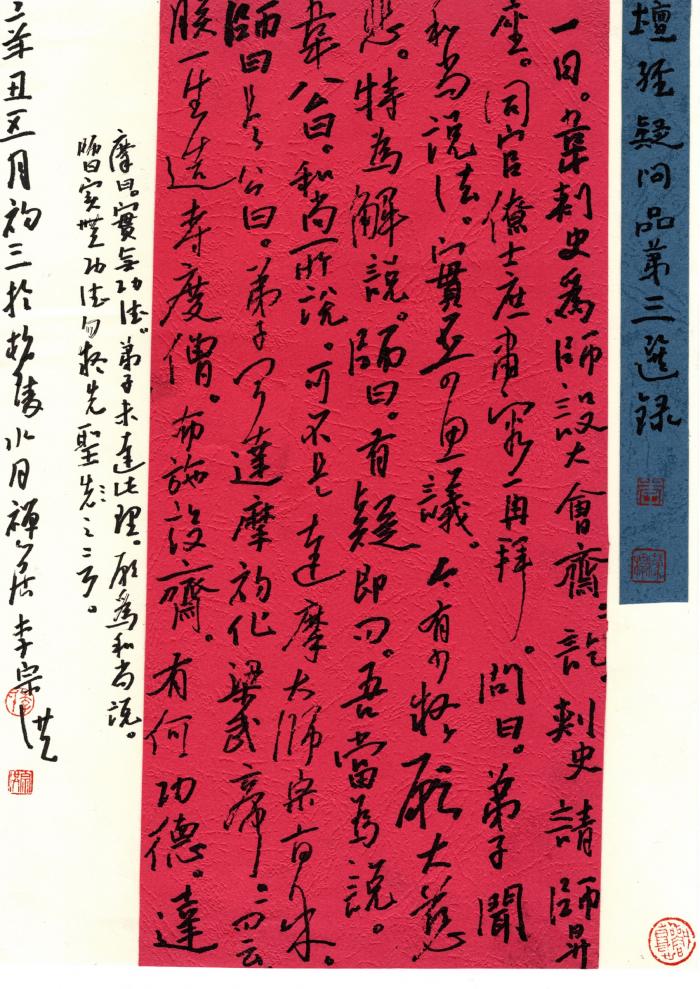 壇經疑問品第三選錄
一日。韋刺史為師設大會齋。〻訖。刺史請師昇
座。同官僚士庶肅容再拜。問曰。弟子聞
和尚說法。實不可思議。今有少疑。願大慈
悲。特為解說。師曰。有疑即問。吾當為說。
韋公曰。和尚所說。可不是達摩大師宗旨乎。
師曰是。公曰。弟子聞達摩初化梁武帝。問云
朕一生造寺度僧。布施設齋。有何功德。達
摩曰。實無功德。弟子未達此理。願為和尚說。
師曰實無功德勿疑先聖之言。
辛丑五月初三於杜陵水月禪居李宗